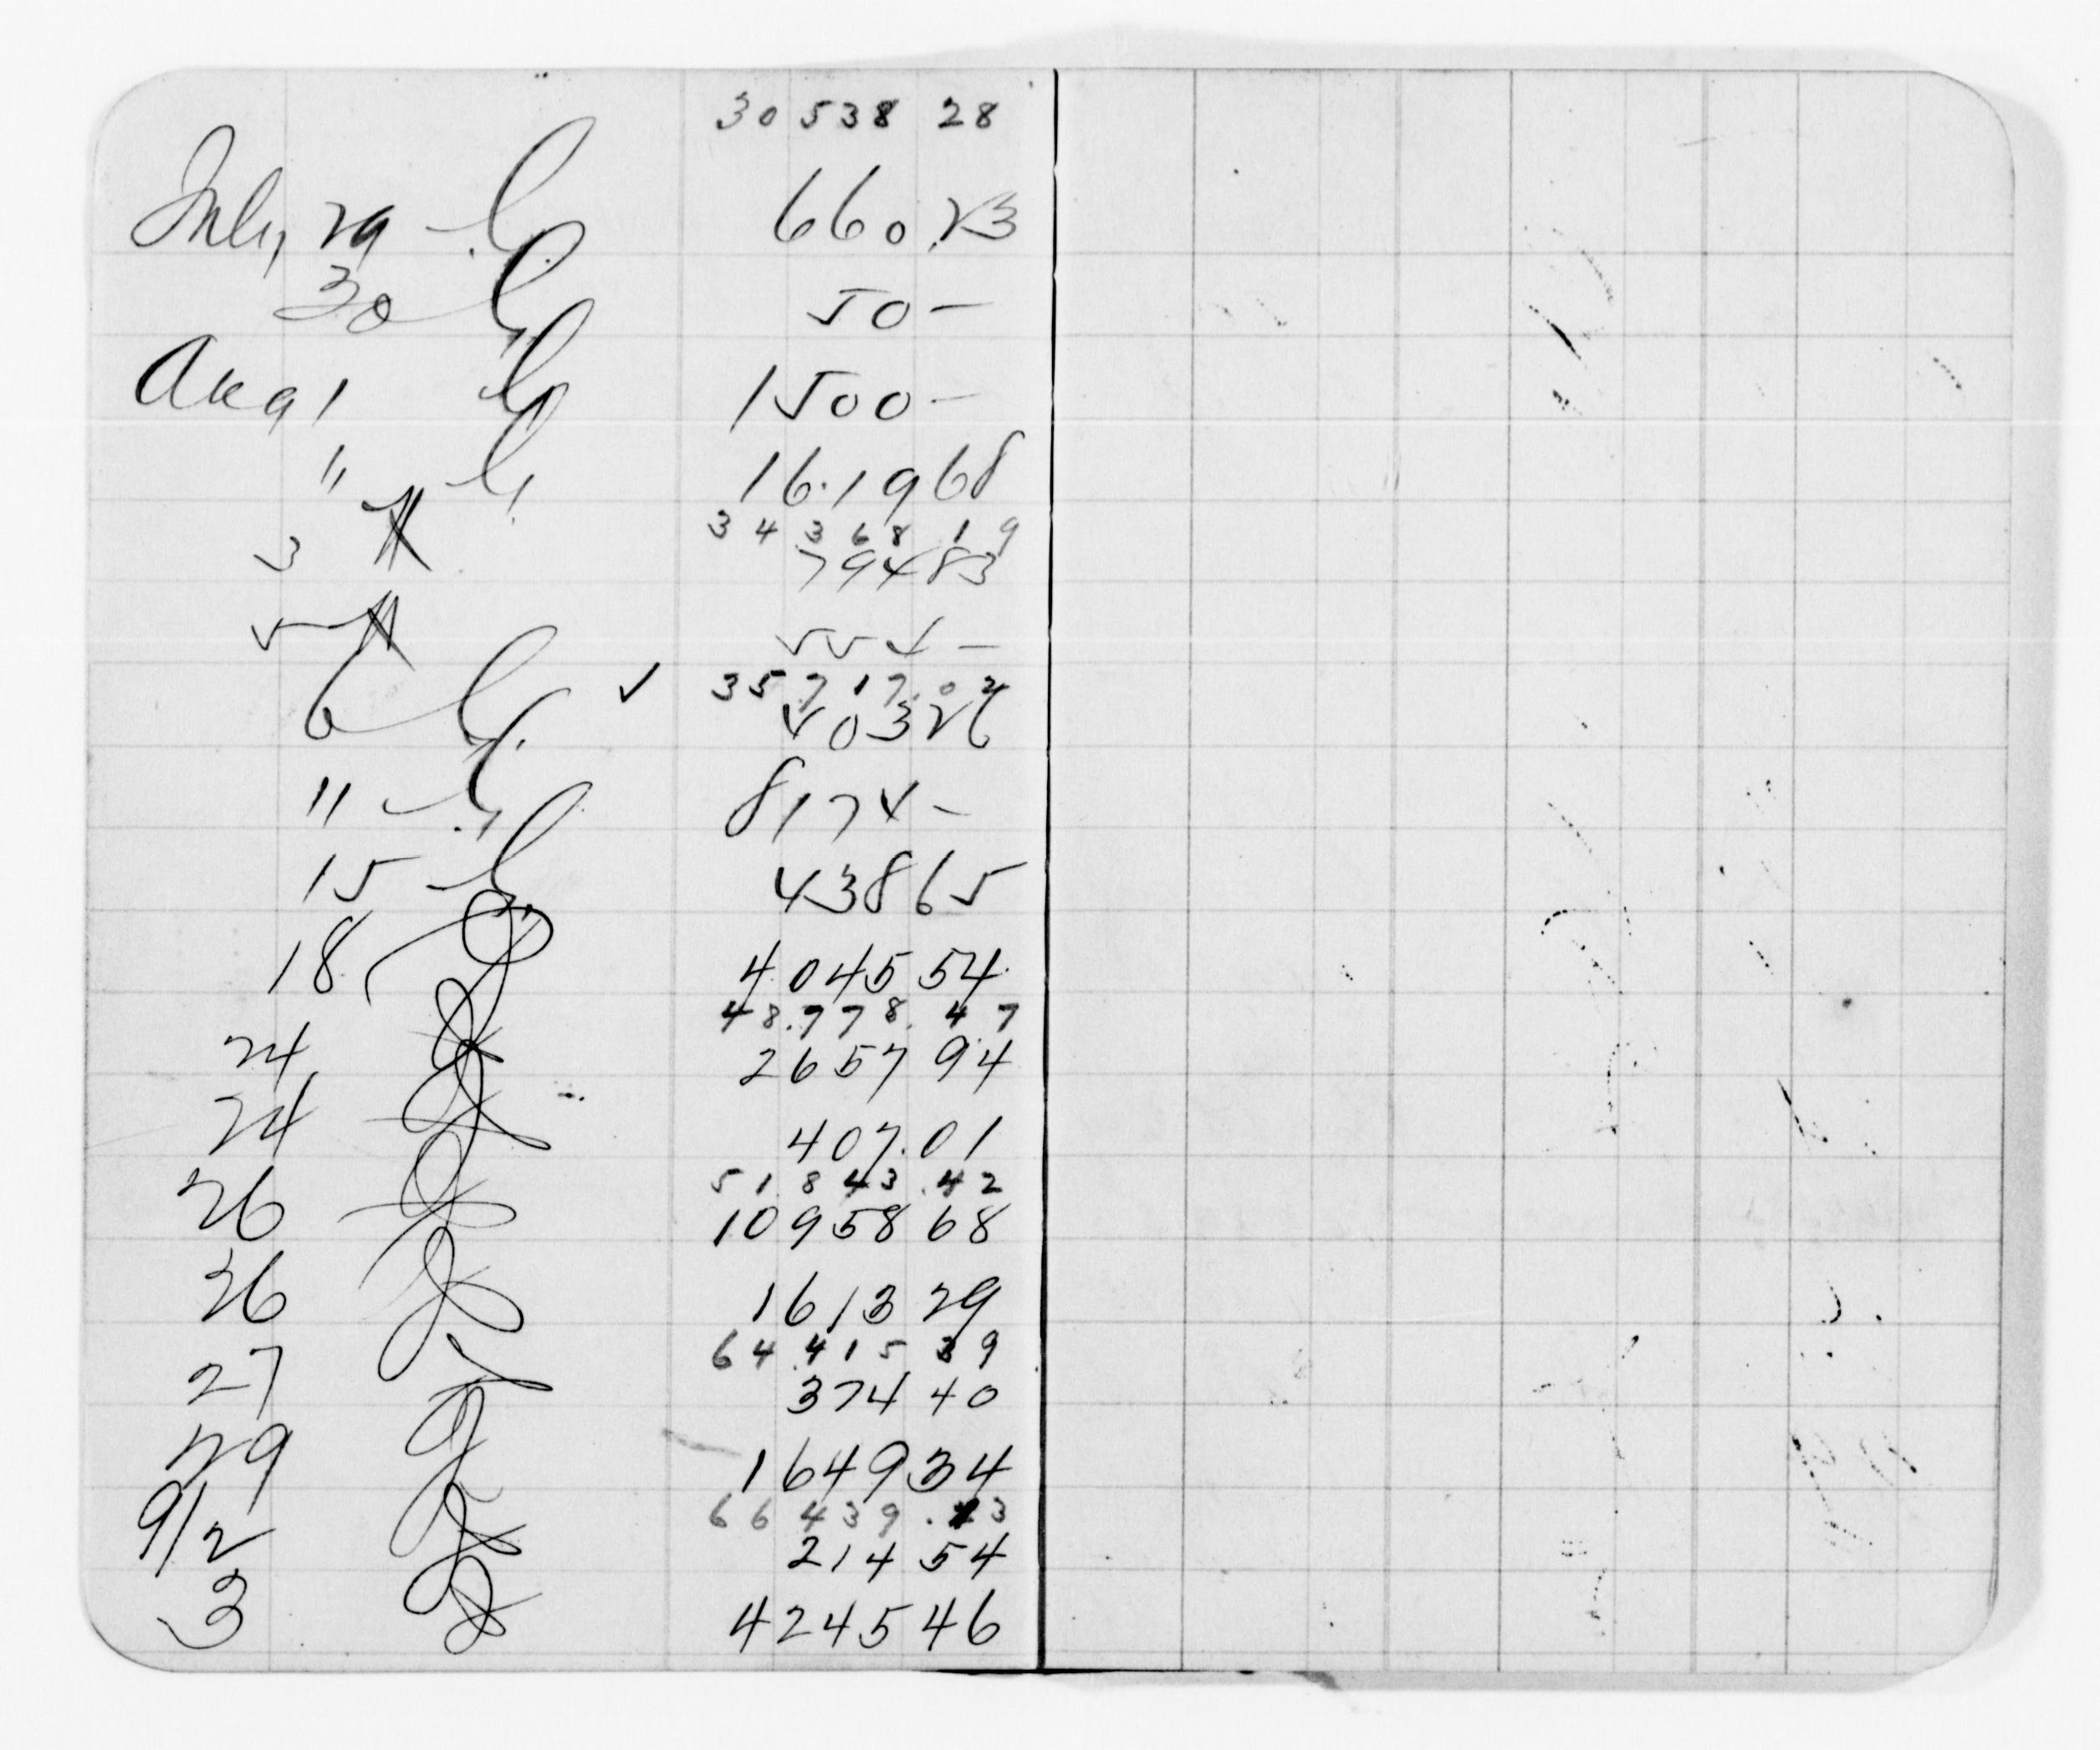 30 538 28
July 29 660.23
30 50 -
Aug 1 1500 -
" 16.19 68
34 368 19
3 794 83
5 554 -
✓ 35 717.02
6 403 26
11 8174 -
15 438 65
18 4045 54
48.778.47
24 2657 94
24 407.01
51 843.42
26 10958 68
26 1613 29
64 415 39
27 374 40
29 1649 34
66 439.13
9/2 214 54
3 4245 46